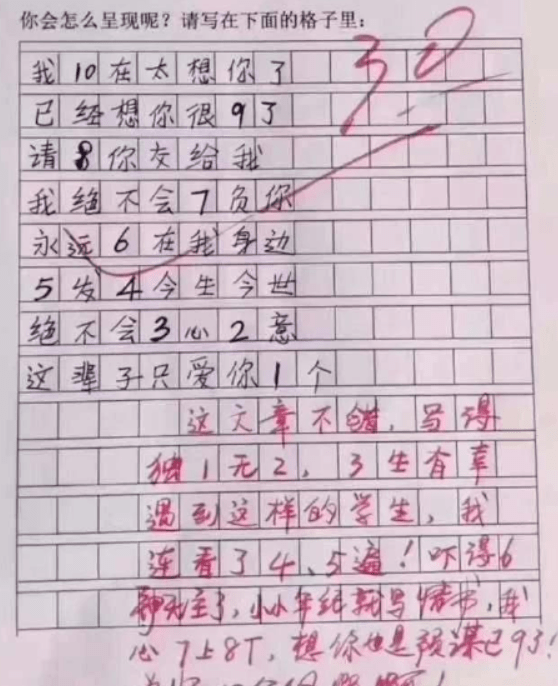 你会怎么呈现呢？请写在下面的格子里：
30
我10在太想你了
已经想你很9了
请8你交给我
我绝不会7负你
永远6在我身边
5发4今生今世
绝不会3心2意
这辈子只爱你1个
这文章不错，写得
独1无2，3生有幸
遇到这样的学生，我
连看了4、5遍！吓得6
神无主了，小小年纪就写情书，我
心7上8下，想你也是预谋已9了！